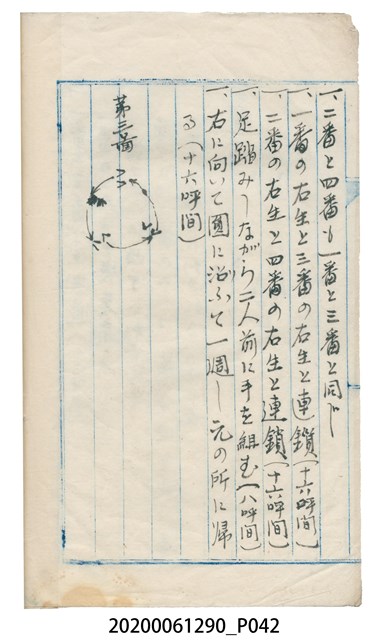 一、二番と四番も一番と三番と同じ
一、一番の右生と三番の右生と連鎖(十六呼間)
一、二番の右生と四番の右生と連鎖(十六呼間)
一、足踏みしながら二人前に手を組む(八呼間)
一、右に向いて圓に沿ふて一週し元の所に帰
る(十六呼間)
第三番
20200061290_P042